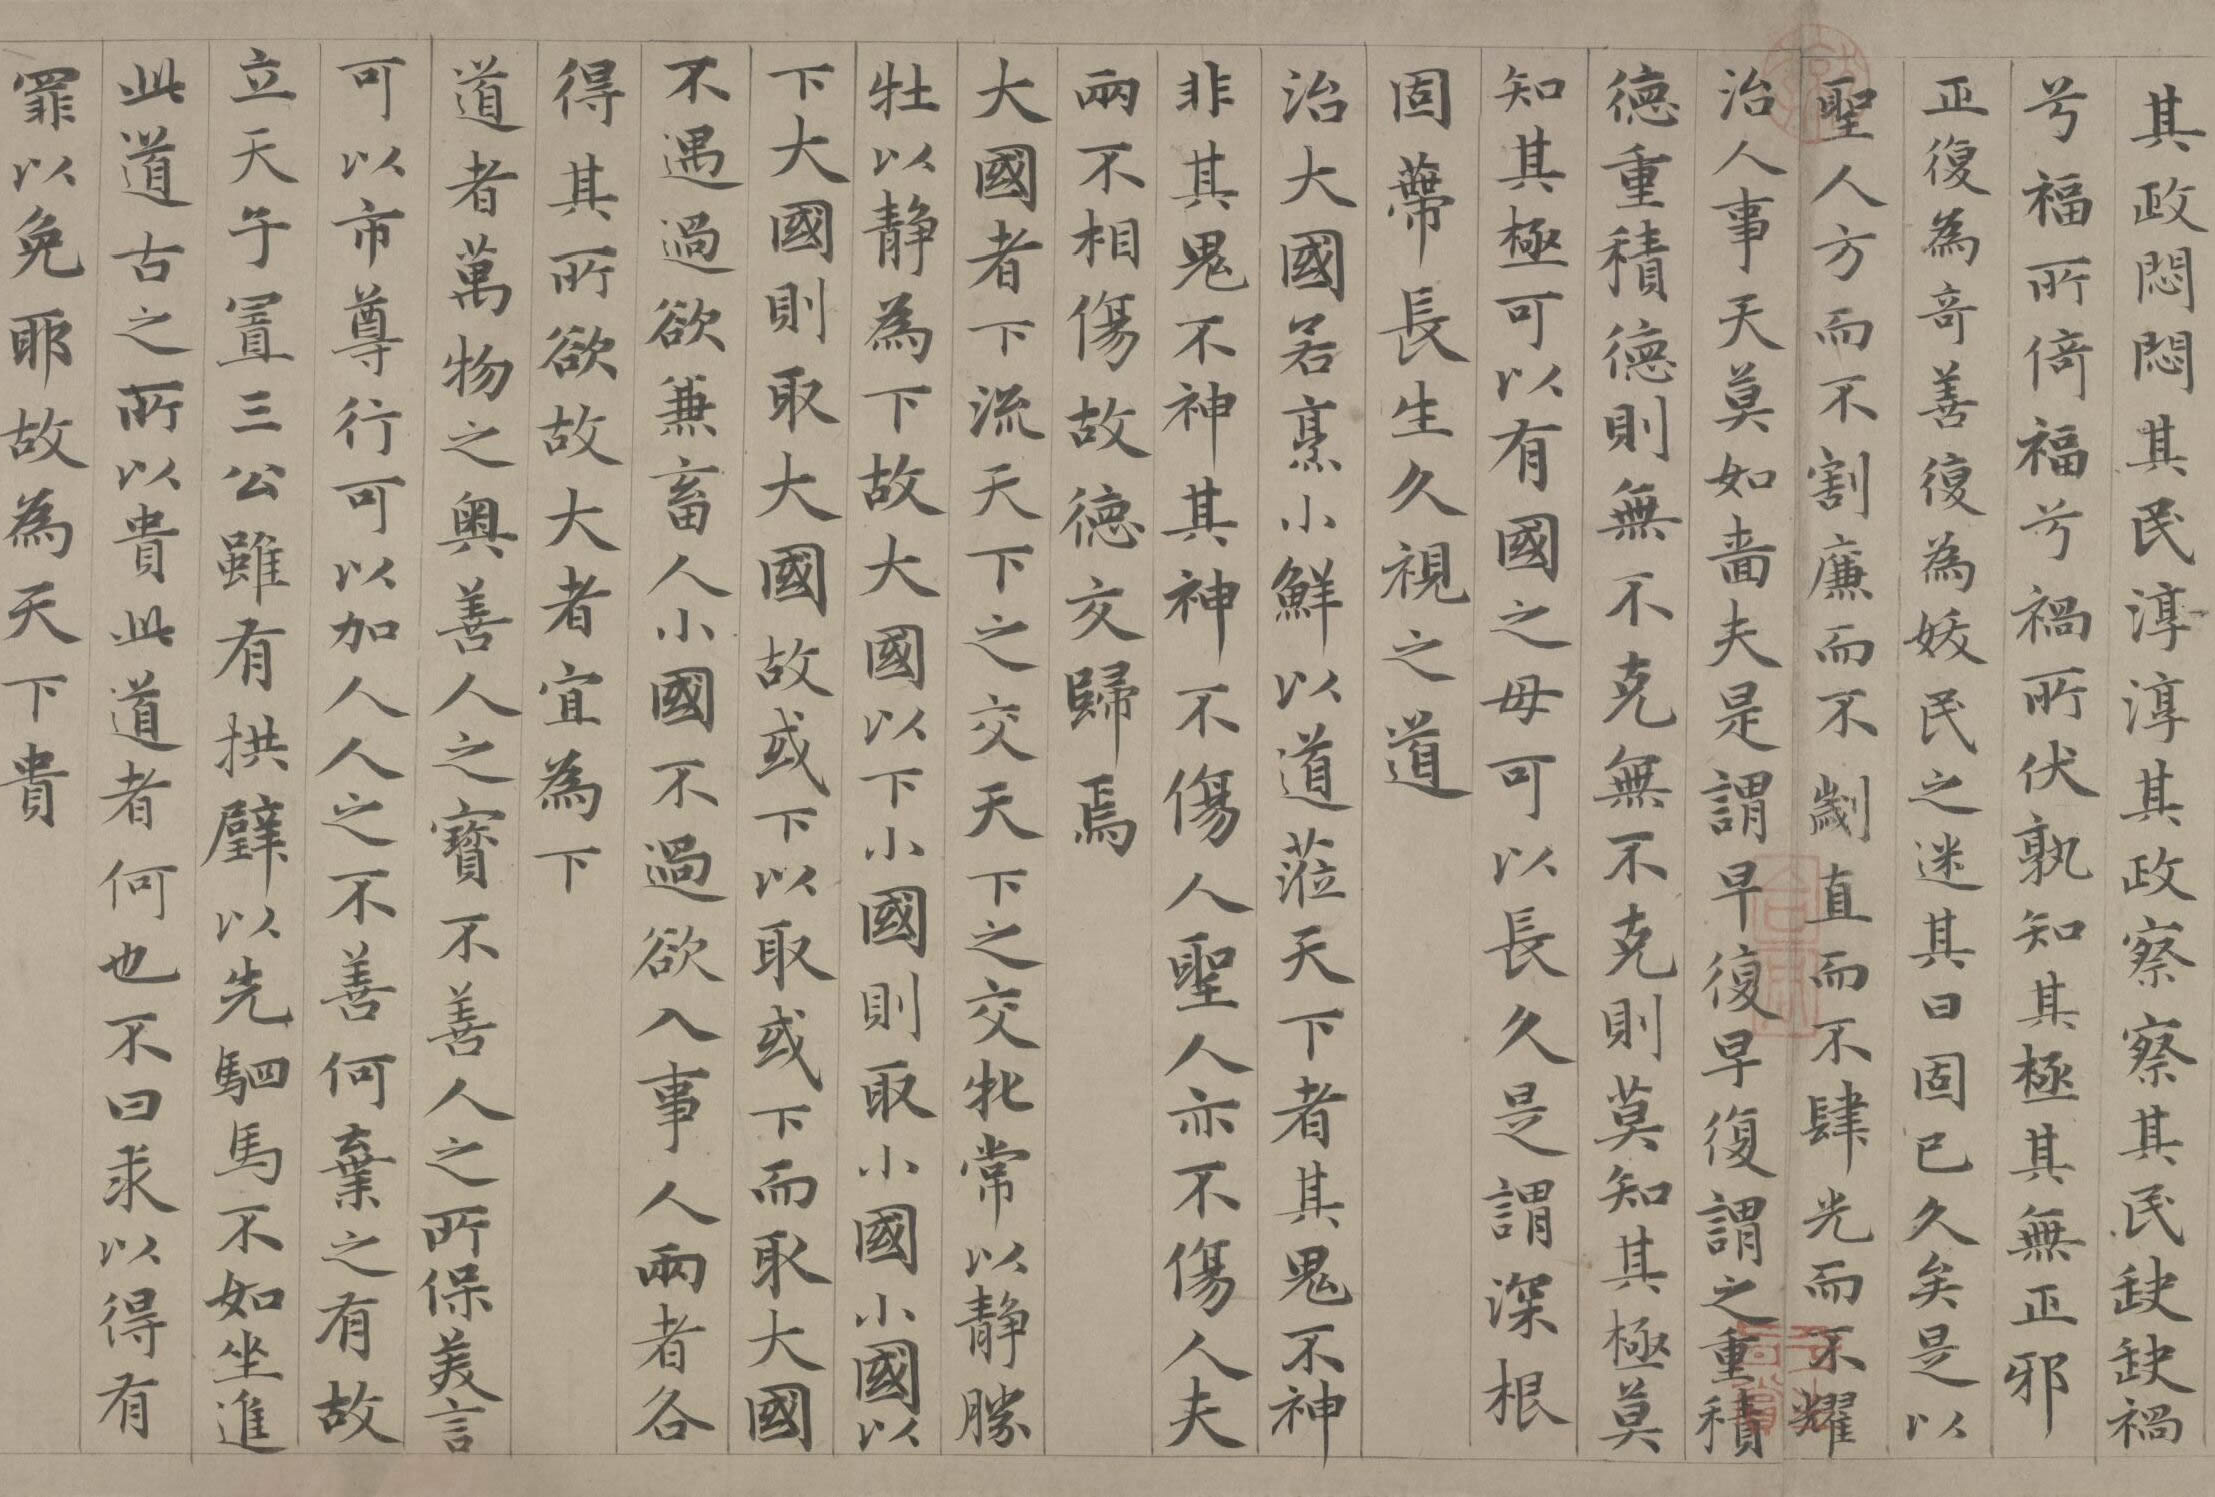 其政悶悶其民淳淳其政察察其民缺缺禍
兮福所倚福兮禍所伏孰知其極其無正邪
正復為奇善復為妖民之迷其日固已久矣是以
聖人方而不割廉而不劌直而不肆光而不耀
治人事天莫如嗇夫是謂早復早復謂之重積
德重積德則無不克無不克則莫知其極莫
知其極可以有國之母可以長久是謂深根
固蔕長生久視之道
治大國若烹小鮮以道蒞天下者其鬼不神
非其鬼不神其神不傷人聖人亦不傷人夫
兩不相傷故德交歸焉
大國者下流天下之交天下之交牝常以靜勝
牡以靜為下故大國以下小國則取小國小國以
下大國則取大國故或下以取或下而取大國
不遇過欲兼畜人小國不過欲入事人兩者各
得其所欲故大者宜為下
道者萬物之奧善人之寶不善人之所保美言
可以市尊行可以加人人之不善何棄之有故
立天子置三公雖有拱璧以先駟馬不如坐進
此道古之所以貴此道者何也不曰求以得有
罪以免耶故為天下貴